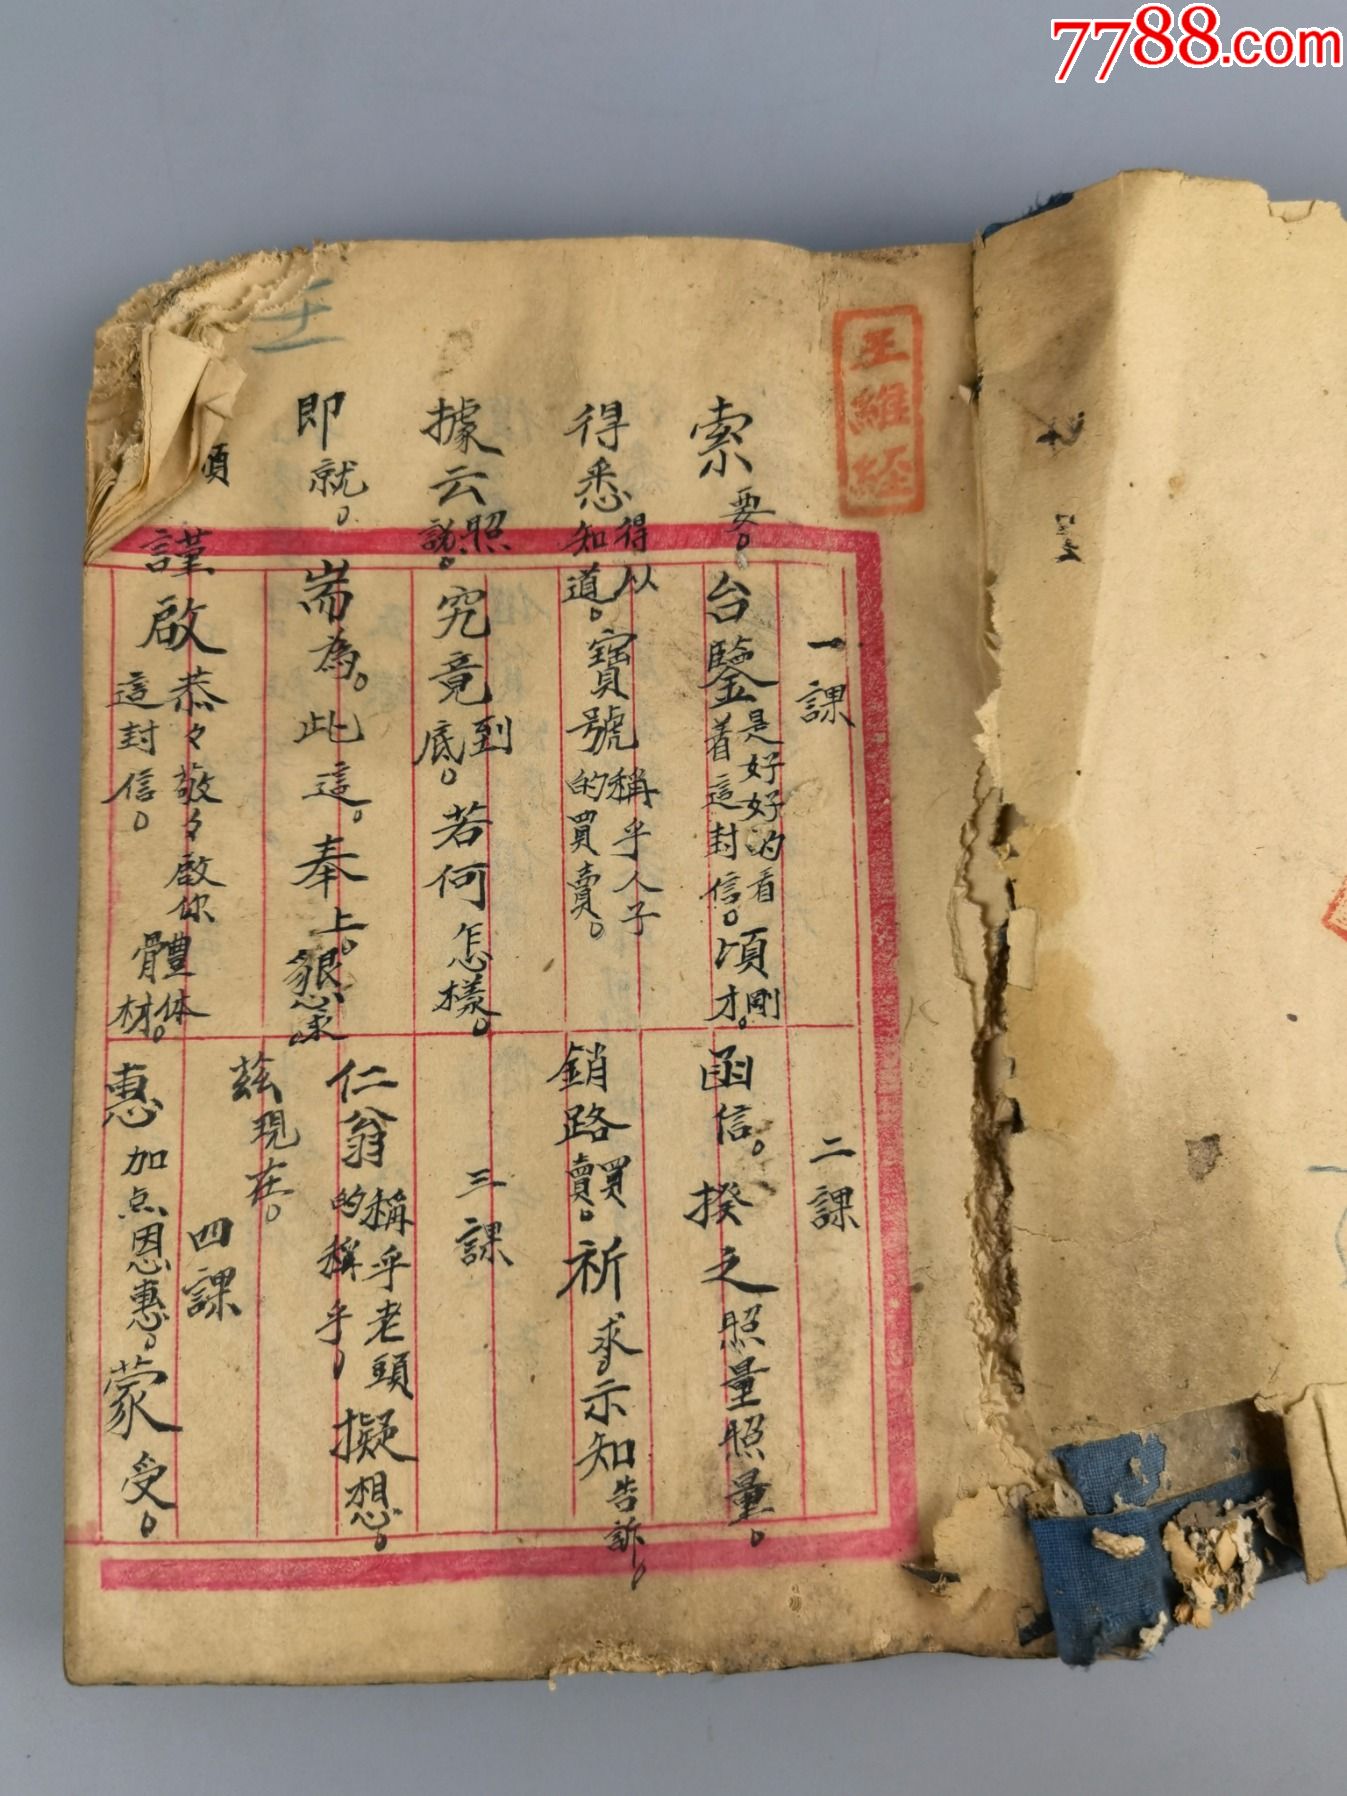 7788.com
王維経
一課
二課
索要。台鑒是好好的看着這封信。頃剛才。
函信。揆之照量照量。
得悉得以知道。寶號稱乎人子的買賣。
銷路買賣。祈求。示知告訴。
據云照說。究竟到底。若何怎樣。
三課
即就。耑為。此這。奉上。懇求。
仁翁稱乎老頭的稱乎。擬想。
茲現在。
四課
謹啟恭々敬々啟你這封信。體体材。
惠加点恩惠。蒙受。